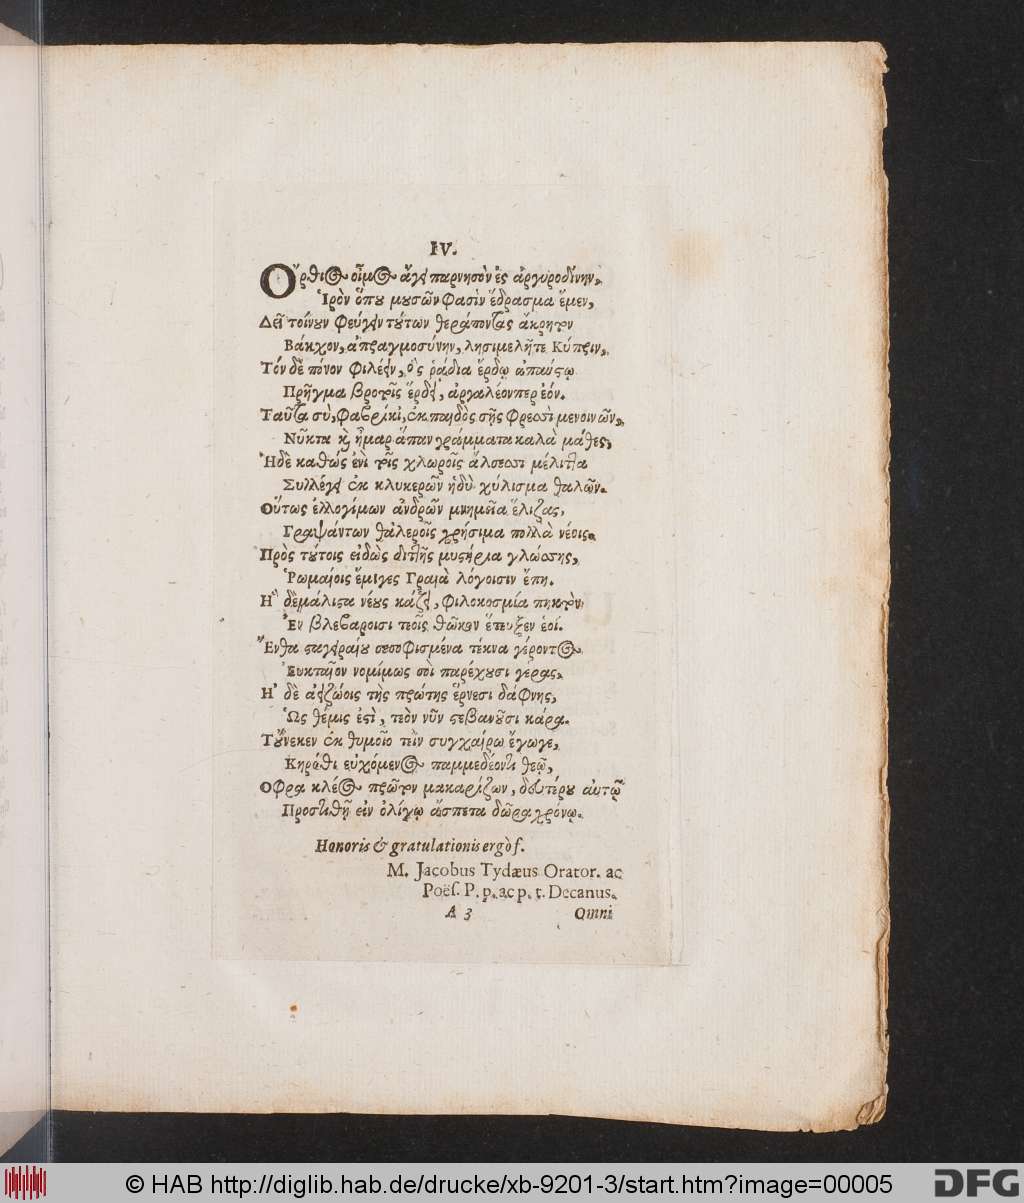 IV.
Ὄρθιος οἶμος ἄγει παρνησὸν ἐς ἀργυροδίνην,
Ἱρὸν ὅπου μουσῶν φασὶν ἕδρασμα ἔμεν,
Δεῖ τοίνυν φεύγειν τούτων θεράποντας ἄκρητον
Βάκχον, ἀπραγμοσύνην, λησιμελῆτε Κύπριν,
Τόν δὲ πόνον φιλέειν, ὃς ῥάδια ἔρδῳ ἀπαύστῳ
Πρῆγμα βροτοῖς ἔρδει, ἀργαλέονπερ ἐόν.
Ταῦτα σὺ, Φαβρίκι, ἐκ παιδὸς σῇς φρεσὶ μενοινῶν,
Νῦκτα καὶ ἦμαρ ἅπαν γράμματα καλὰ μάθες,
Ἠδὲ καθώς ἐνὶ τοῖς χλωροῖς ἄλσεσσι μέλιττα
Συλλέγει ἐκ κλυκερῶν ἡδὺ χύλισμα θαλῶν.
Οὕτως ἐλλογίμων ἀνδρῶν μνημεῖα ἕλιξας,
Γραψάντων θαλεροῖς χρήσιμα πολλὰ νέοις.
Πρὸς τούτοις εἰδὼς διττῆς μυστήρια γλώσσης,
Ῥωμαίοις ἔμιγες Γραιὰ λόγοισιν ἔπη.
Ἣ δὲ μάλιστα νέους κάζει, φιλοκοσμία πηκτὸν
Ἐν βλεφαροισι τεοῖς θῶκον ἔτευξεν ἑοί.
Ἔνθα σεσοφισμένα τέκνα γέροντος
Ἐυκταῖον νομίμως σοὶ παρέχουσι γέρας,
Ἠ δὲ ἀειζώοις τῆς πρώτης ἔρνεσι δάφνης,
Ὡς θέμις ἐστὶ, τεὸν νῦν στεβανοῦσι κάρα.
Τοὔνεκεν ἐκ θυμοῖο τεῒν συγχαίρω ἔγωγε,
Κηρόθι εὐχόμενος παμμεδέοντι θεῷ,
Οφρα κλέος πρῶτον μακαρίζων, δευτέρου αὐτῷ
Προστιθῇ εἰν ὀλίγῳ ἄσπετα δῶρα χρόνῳ.
Honoris & gratulationis ergò f.
M. Jacobus Tydæus Orator. ac
Poëſ. P. p. ac p. t. Decanus.
A 3 Omni
© HAB http://diglib.hab.de/drucke/xb-9201-3/start.htm?image=00005
DFG